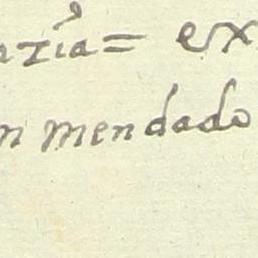 zia= ex
n mendado